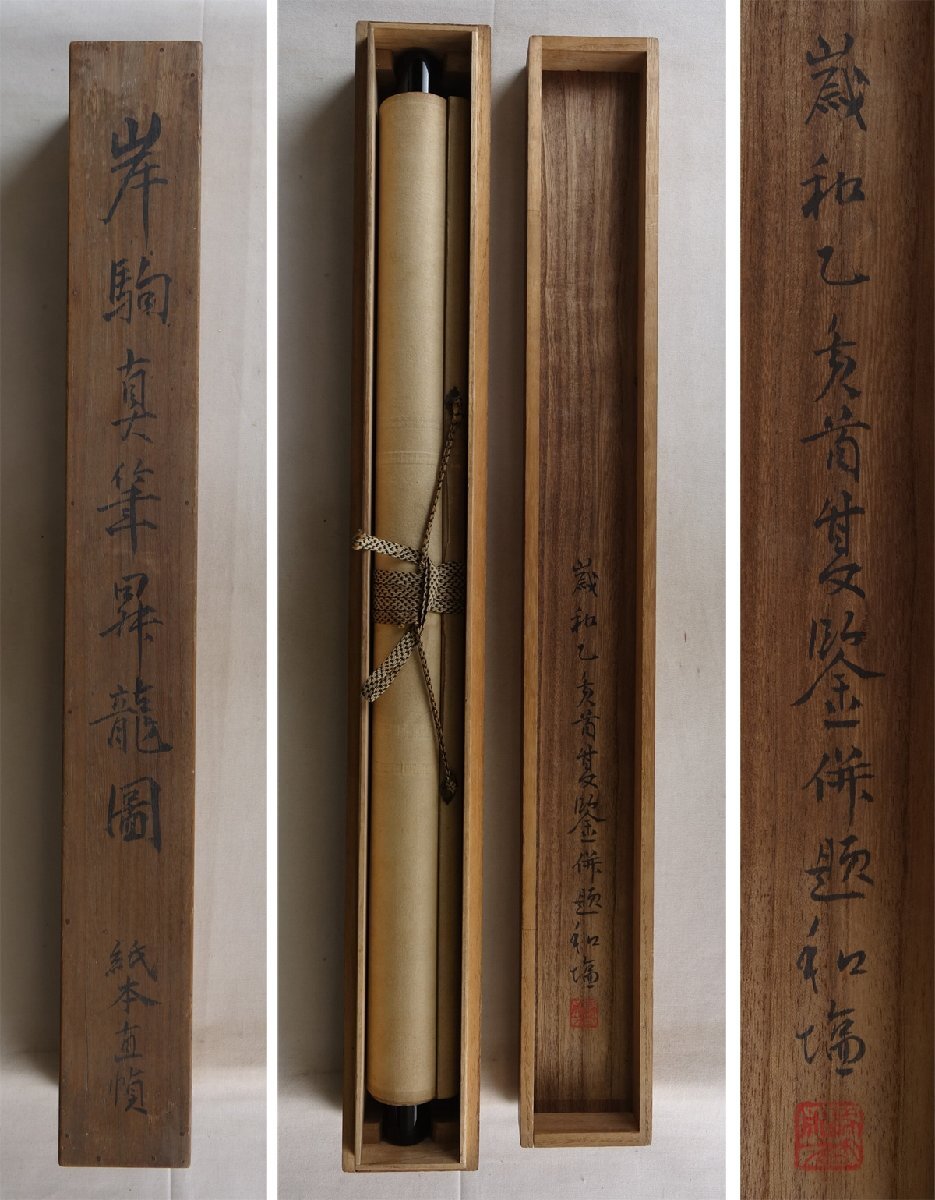 岸駒真筆昇龍圖
紙本直幀
歳和乙亥首夏鑒併題和
歳和乙亥首夏鑒併題和